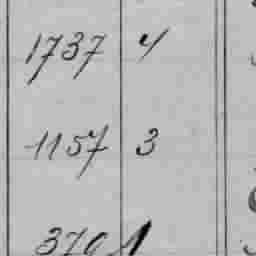 1737 4
1157 3
370 1